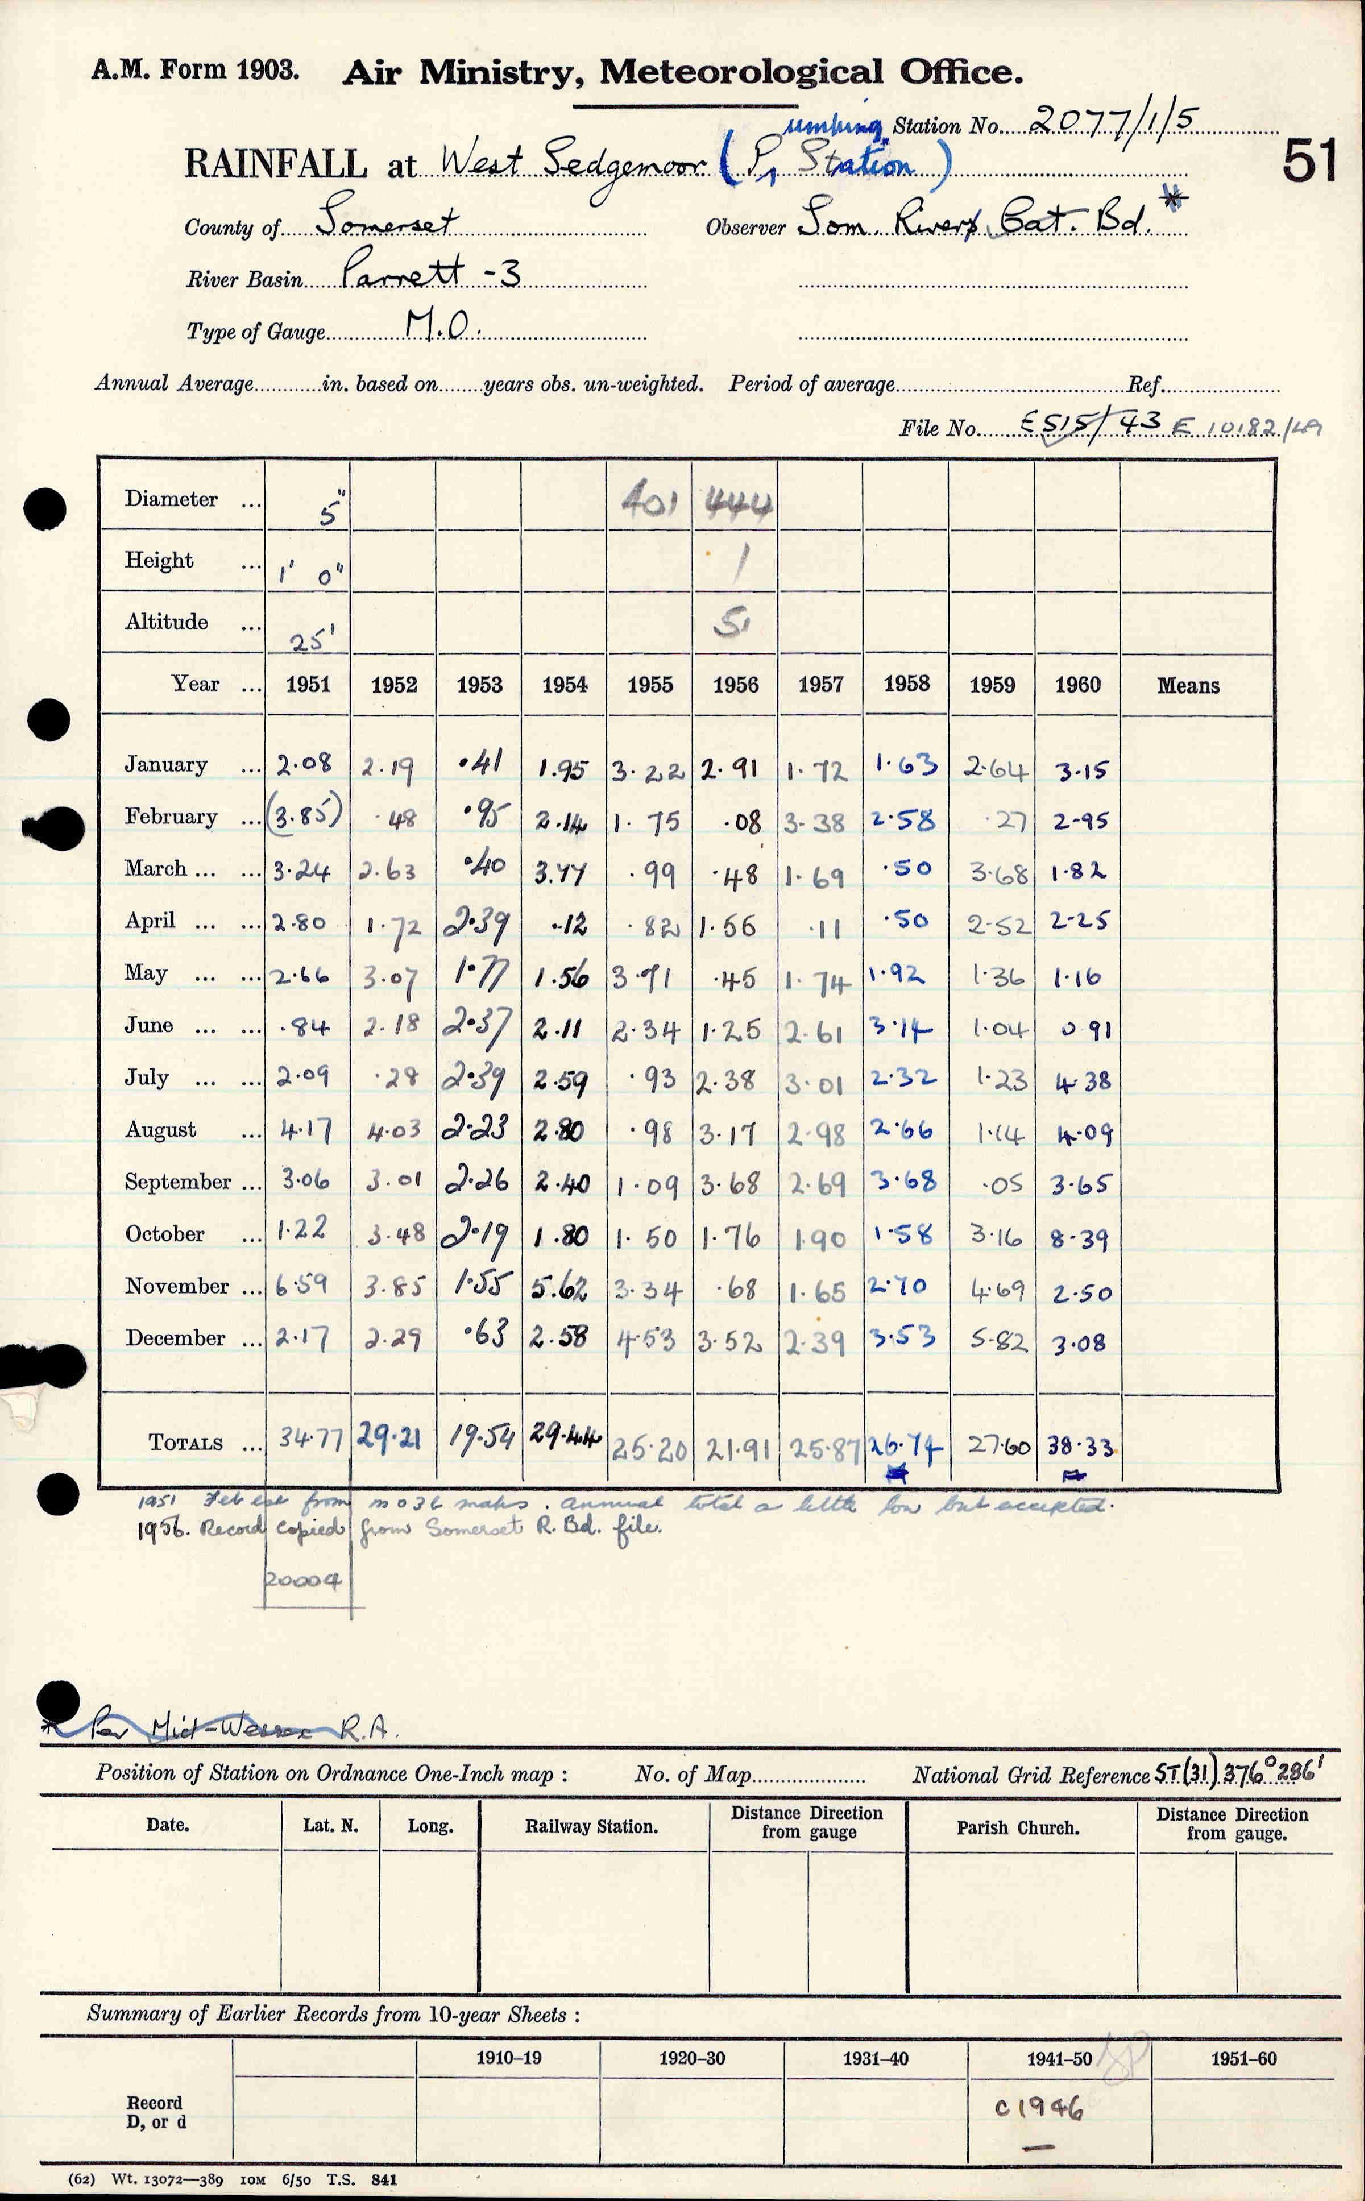 A.M. Form 1903. Air Ministry, Meteorological Office.
Station No. 2077/1/5
51
RAINFALL at West Sedgemoor (Pumping Station)
County of Somerset Observer Som. Rivers Cat. Bd. *
River Basin Parrett -3
Type of Gauge M.O.
Annual Average in. based on years obs. un-weighted. Period of average Ref.
File No. E515/43 E 10182/49
Diameter ... 5" 401 444
Height ... 1' 0" 1
Altitude ... 25' 5
Year ... 1951 1952 1953 1954 1955 1956 1957 1958 1959 1960 Means
January ... 2.08 2.19 .41 1.95 3.22 2.91 1.72 1.63 2.64 3.15
February ... (3.85) .48 .95 2.14 1.75 .08 3.38 2.58 .27 2.95
March ... ... 3.24 2.63 .40 3.77 .99 .48 1.69 .50 3.68 1.82
April ... ... 2.80 1.72 2.39 .12 .82 1.56 .11 .50 2.52 2.25
May ... ... 2.66 3.07 1.77 1.56 3.71 .45 1.74 1.92 1.36 1.16
June ... ... .84 2.18 2.37 2.11 2.34 1.25 2.61 3.14 1.04 0.91
July ... ... 2.09 .28 2.39 2.59 .93 2.38 3.01 2.32 1.23 4.38
August ... 4.17 4.03 2.23 2.80 .98 3.17 2.98 2.66 1.14 4.09
September ... 3.06 3.01 2.26 2.40 1.09 3.68 2.69 3.68 .05 3.65
October ... 1.22 3.48 2.19 1.80 1.50 1.76 1.90 1.58 3.16 8.39
November ... 6.59 3.85 1.55 5.62 3.34 .68 1.65 2.70 4.69 2.50
December ... 2.17 2.29 .63 2.58 4.53 3.52 2.39 3.53 5.82 3.08
TOTALS ... 34.77 29.21 19.54 29.44 25.20 21.91 25.87 26.74 27.60 38.33
1951 Feb est from maps. annual total a little low but accepted.
1956. Record copied from Somerset R. Bd. file.
20004
* Per Mid-Wessex R.A.
Position of Station on Ordnance One-Inch map : No. of Map National Grid Reference ST(31) 376⁰ 286'
Date. Lat. N. Long. Railway Station. Distance Direction from gauge Parish Church. Distance Direction from gauge.
Summary of Earlier Records from 10-year Sheets :
1910–19 1920–30 1931–40 1941–50 1951–60
Record
D, or d c1946
(62) Wt. 13072—389 10M 6/50 T.S. 841